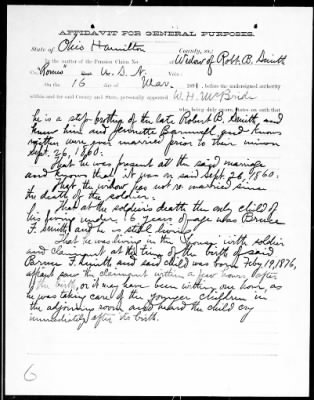 AFFIDAVIT FOR GENERAL PURPOSES.
State of Ohio Hamilton County, ss:
In the matter of the Pension Claim No. Widow of Robt. B. Smith
"Romeo" U.S.N. Vols:
On the 16 day of Mar. 189 , before the undersigned authority
within and for said County and State, personally appeared W. H. McBride
who being duly sworn states on such oath
he is a step brother of the late Robert B. Smith, and
knew him and Bammel and knows
neither were ever married prior to their union
Sept. 26, 1860:
That he was present at the said marriage
and knows that it was on said Sept 26, 1860:
That the widow has not re married since
the death of the soldier:
That at the soldier's death the only child of
his living under 16 years of age was
F. Smith and he is still living:
That he was living in the house with soldier
and claimant at the time of the birth of said
F. Smith and said child was born Feby 19, 1876,
affiant saw the claimant within a few hours after
the birth, or it may have been within one hour, as
he was taking care of the younger children in
the adjoining room and heard the child cry
immediately after its birth.
6